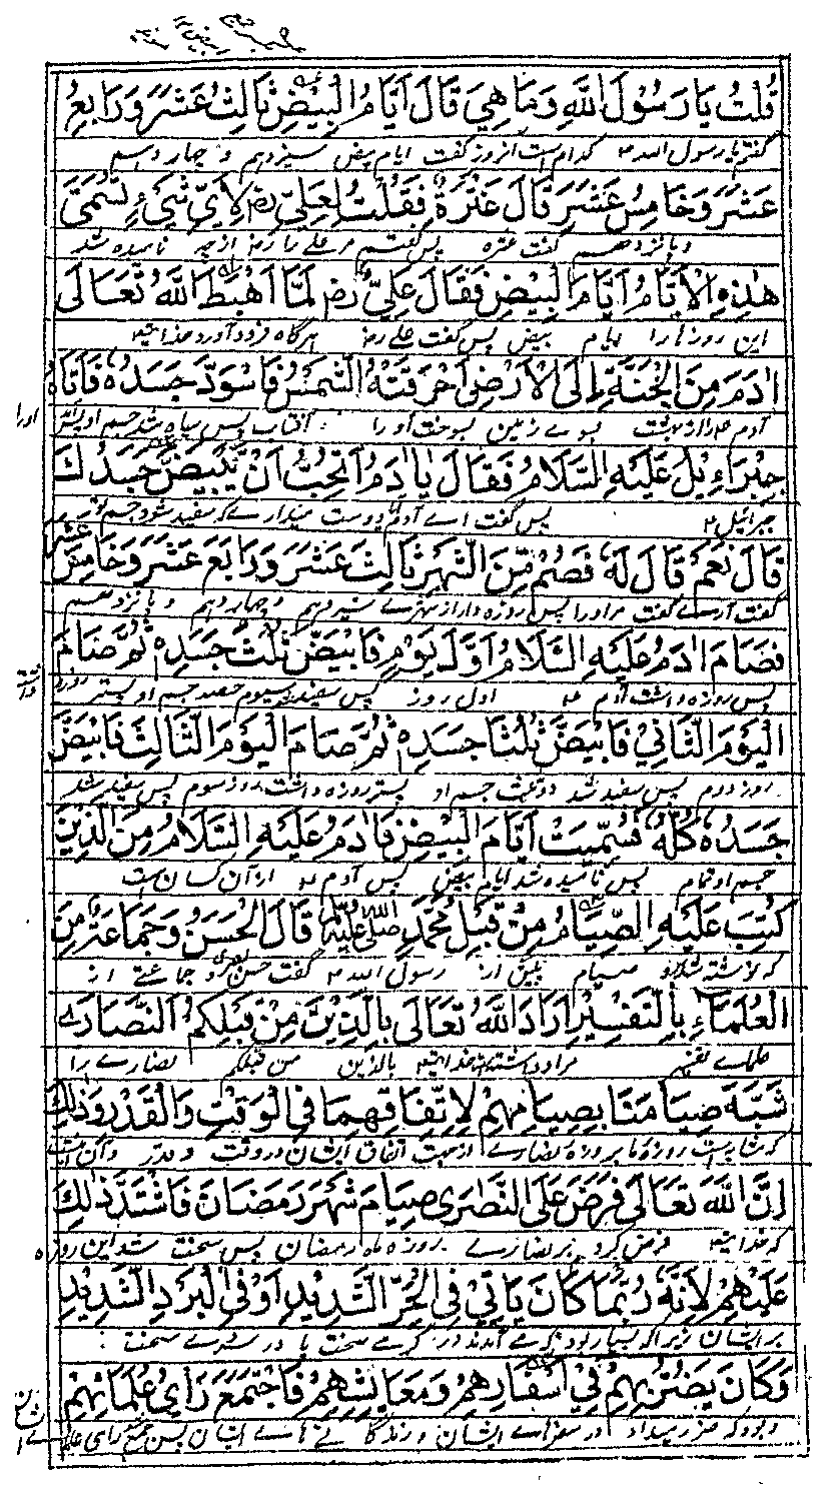 قُلْتُ يَا رَسُوْلَ اللّٰهِ وَمَا هِيَ قَالَ اَيَّامُ الْبِيْضِ ثَالِثُ عَشَرَ وَرَابِعُ
گفتم یا رسول الله کدام است آنروز گفت ایام بیض سیزدهم و چهاردهم
عَشَرَ وَخَامِسُ عَشَرَ قَالَ عَنْتَرَةُ فَقُلْتُ لِعَلِيٍّ رض لِاَيِّ شَيْءٍ تُسَمّٰى
و پانزدهم گفت عنتره پس گفتم مر علی را رض از چه نامیده شد
هٰذِهِ الْاَيَّامُ اَيَّامَ الْبِيْضِ فَقَالَ عَلِيٌّ رض لَمَّا اَهْبَطَ اللّٰهُ تَعَالٰى
این روزها را ایام بیض پس گفت علی رض هرگاه فرود آورد خدایتعم
اٰدَمَ مِنَ الْجَنَّةِ اِلَى الْاَرْضِ اَحْرَقَتْهُ الشَّمْسُ فَاسْوَدَّ جَسَدُهٗ فَاَتَاهُ
آدم را از بهشت بسوی زمین بسوخت او را آفتاب پس سیاه شد جسم او پس آمد او را
جِبْرَاءِيْلُ عَلَيْهِ السَّلَامُ فَقَالَ يَا اٰدَمُ اَتُحِبُّ اَنْ يَّبْيَضَّ جَسَدُكَ
جبرائیل پس گفت ای آدم دوست میداری که سفید شود جسم تو
قَالَ نَعَمْ قَالَ لَهٗ فَصُمْ مِّنَ الشَّهْرِ ثَالِثَ عَشَرَ وَرَابَعَ عَشَرَ وَخَامِسَ عَشَرَ
گفت آری گفت مر او را پس روزه دار از شهر سیزدهم و چهاردهم و پانزدهم
فَصَامَ اٰدَمُ عَلَيْهِ السَّلَامُ اَوَّلَ يَوْمٍ فَابْيَضَّ ثُلُثُ جَسَدِهٖ ثُمَّ صَامَ
پس روزه داشت آدم اول روز پس سفید شد سیوم حصه جسم او پستر روزه داشت
الْيَوْمَ الثَّانِيَ فَابْيَضَّ ثُلُثَا جَسَدِهٖ ثُمَّ صَامَ الْيَوْمَ الثَّالِثَ فَابْيَضَّ
روز دوم پس سفید شد دو ثلث جسم او پستر روزه داشت روز سوم پس سفید شد
جَسَدُهٗ كُلُّهٗ فَسُمِّيَتْ اَيَّامَ الْبِيْضِ فَاٰدَمُ عَلَيْهِ السَّلَامُ مِنَ الَّذِيْنَ
جسم او تمام پس نامیده شد ایام بیض پس آدم از آن کسان است
كُتِبَ عَلَيْهِ الصِّيَامُ مِنْ قَبْلِ مُحَمَّدٍ صلى الله عليه وسلم قَالَ الْحَسَنُ وَجَمَاعَةٌ مِنَ
که نوشته شد بر او صیام پیش از رسول الله گفت حسن بصری و جماعتی از
الْعُلَمَاءِ بِالتَّفْسِيْرِ اَرَادَ اللّٰهُ تَعَالٰى بِالَّذِيْنَ مِنْ قَبْلِكُمُ النَّصَارٰے
علمای تفسیر مراد داشته خدایتعم بالذین من قبلکم نصاری را
شَبَّهَ صِيَامَنَا بِصِيَامِهِمْ لِاِتِّفَاقِهِمَا فِي الْوَقْتِ وَالْقَدْرِ وَذٰلِكَ
روزه ما بروزه نصاری از جهت اتفاق ایشان در وقت و قدر و آن
اِنَّ اللّٰهَ تَعَالٰى فَرَضَ عَلَى النَّصٰرٰى صِيَامَ شَهْرِ رَمَضَانَ فَاشْتَدَّ ذٰلِكَ
که خدایتعم فرض کرد بر نصاری روزه ماه رمضان پس سخت شد این روزه
عَلَيْهِمْ لِاَنَّهٗ رُبَّمَا كَانَ يَاْتِيْ فِي الْحَرِّ الشَّدِيْدِ اَوْ فِي الْبَرْدِ الشَّدِيْدِ
بر ایشان زیرا که بسیار بودکه می آمد در گرمی سخت یا در سردی سخت
وَكَانَ يَضُرُّ بِهِمْ فِيْ اَسْفَارِهِمْ وَمَعَايِشِهِمْ فَاجْتَمَعَ رَاْيُ عُلَمَائِهِمْ
و بود که ضرر میداد در سفرهای ایشان و زندگانی های ایشان پس جمع شد رای علمای ایشان